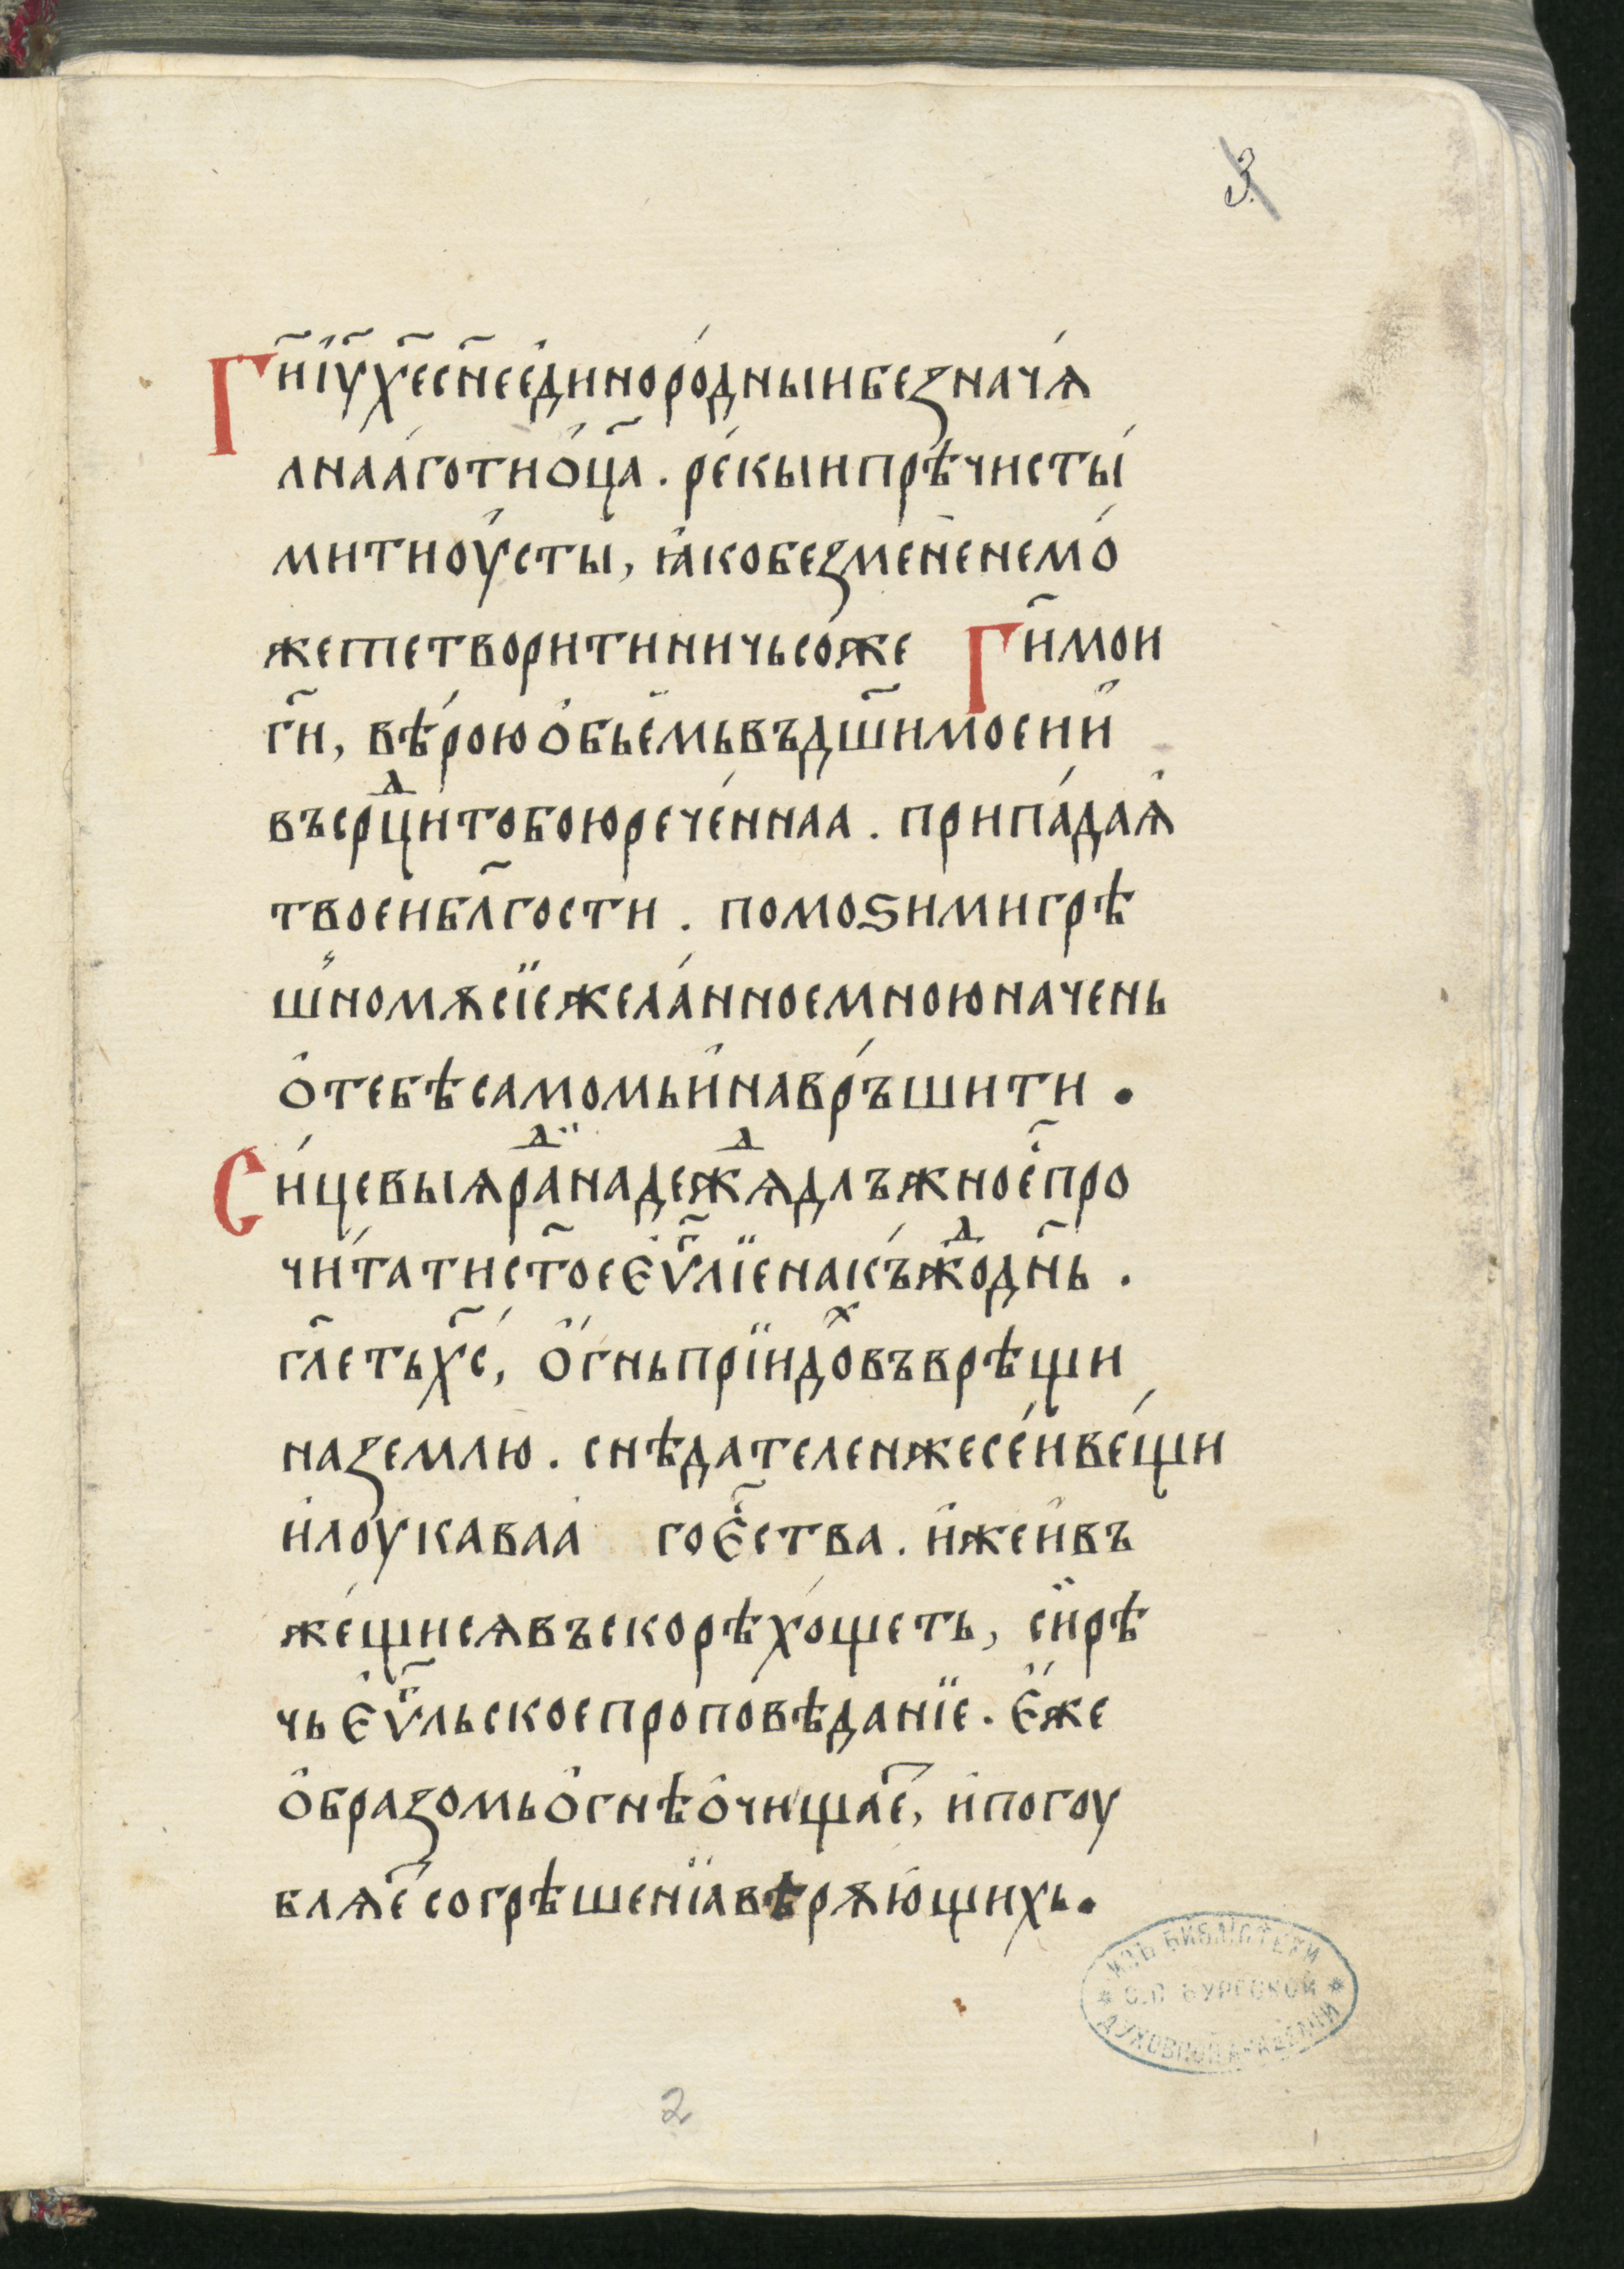 3
Гн҃и і҆у҃ х҃е сн҃е є҆диноро́дныи безнача́ѧ
лна́аго ти ѻ҆ц҃а . ре́кыи прѣчисты́
ми ти оу҆сты, ꙗ҆ко без мене не мо́
жете творити ничьсо́же Гн҃и мои
гн҃и, вѣ́рою ѻ҆бьемь въ дш҃и моеи и҆
въ срⷣци тобою рече́ннаа . припа́даѧ
твоеи блг҃ости . помоѕи ми грѣ
шномѫ сїе жела́нное мною начень
ѻ҆ тебѣ самомь и҆ навръ́шити .
Си́цевыѧ раⷣ надежⷣѧ длъжно е҆҃ про
чи́тати ст҃ое є҆ѵⷢ҇лїе на къ́жⷣо дн҃ь .
гл҃еть х҃с, ѻ҆́гнь прїидоⷯ въврѣщи
на землю . снѣдателен же се́и ве́щи
и҆ лоукаваа го є҆҃ства . и҆же и҆ въ
же́щисѧ въскорѣ хо́щеть, си҆рѣ
чь є҆ѵⷢ҇льское проповѣданїе . є҆́же
ѻ҆бразомь ѻ҆гнѣ ѻ҆чищае҆҃, и҆ погоу
блѧе҃ согрѣшенїа вѣрѫю҆щихь .
ИЗЪ БИБЛІОТЕКИ
С.П. БУРГСКОЙ
ДУХОВНОЙ АКАДЕМІИ
2